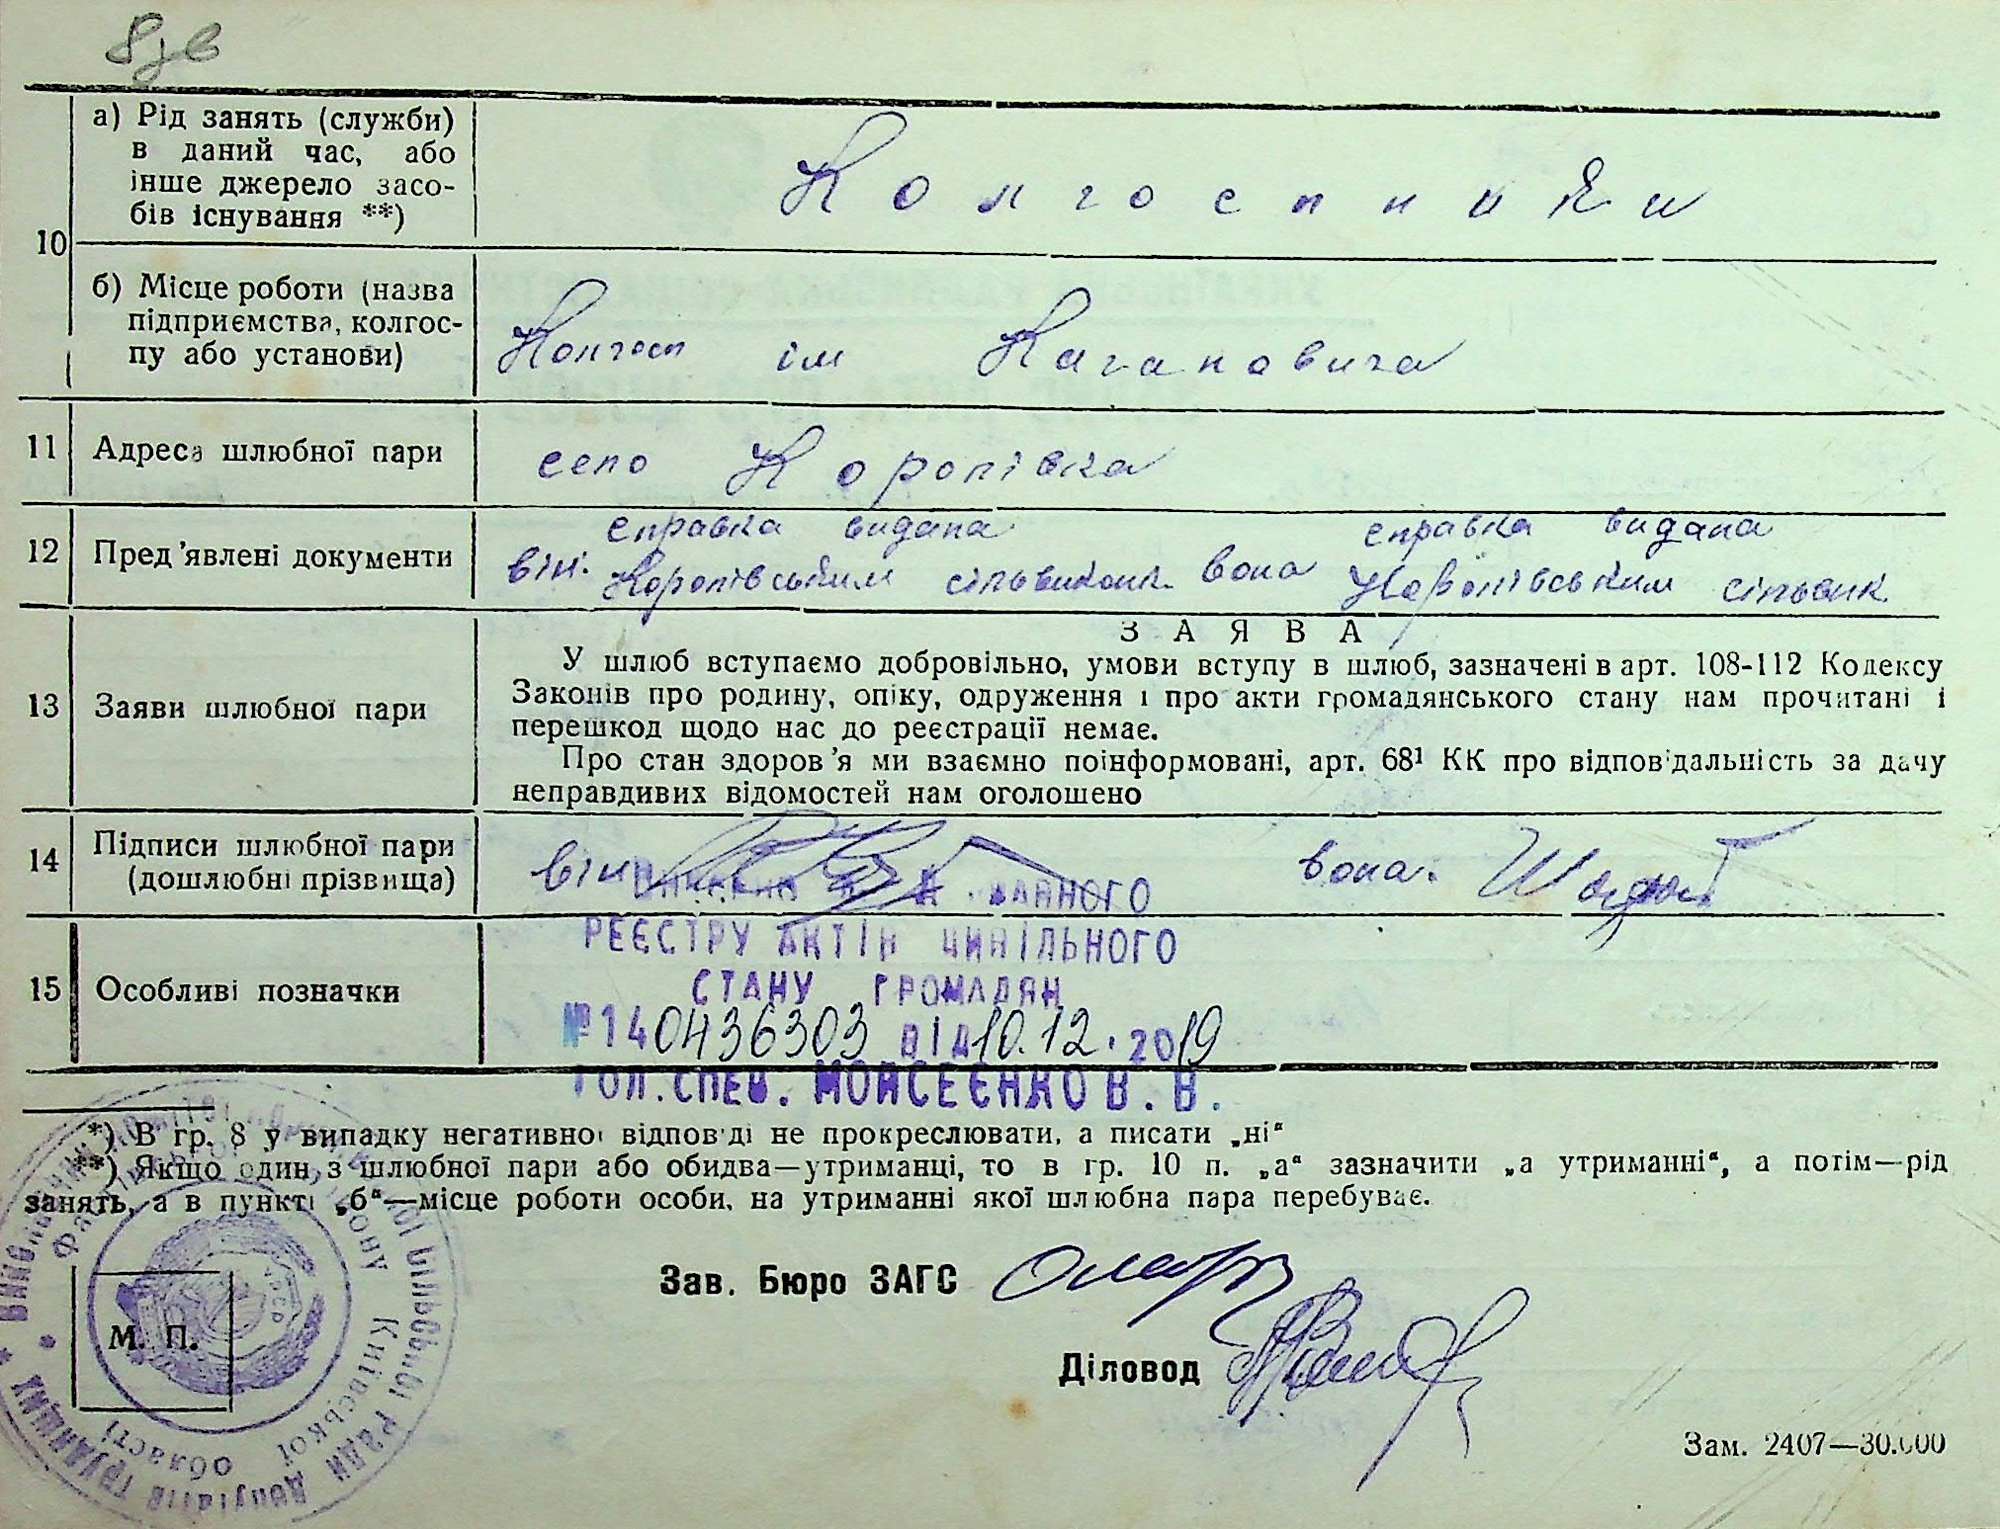 а) Рід занять (служби)
в даний час, або
інше джерело засо-
бів існування **)
Колгоспники
10
б) Місце роботи (назва
підприємства, колгос-
пу або установи)
Колгосп ім Кагановича
11 Адреса шлюбної пари село Коропівка
12 Пред'явлені документи
справка видана справка видана
він. Коропівським сільвиконк. вона Коропівським сільвик.
ЗАЯВА
13 Заяви шлюбної пари
У шлюб вступаємо добровільно, умови вступу в шлюб, зазначені в арт. 108-112 Кодексу
Законів про родину, опіку, одруження і про акти громадянського стану нам прочитані і
перешкод щодо нас до реєстрації немає.
Про стан здоров'я ми взаємно поінформовані, арт. 68¹ КК про відповідальність за дачу
неправдивих відомостей нам оголошено
14 Підписи шлюбної пари
(дошлюбні прізвища)
він вона.
РЕЄСТРУ АКТІВ ЦИВІЛЬНОГО
15 Особливі позначки
СТАНУ ГРОМАДЯН
№140436303 ВІД 10.12.2019
ГОЛ.СПЕЦ. МОЙСЕЄНКО В.В.
*) В гр. 8 у випадку негативної відповіді не прокреслювати, а писати „ні“
**) Якщо один з шлюбної пари або обидва—утриманці, то в гр. 10 п. „а“ зазначити „а утриманні“, а потім—рід
занять, а в пункті „б“—місце роботи особи, на утриманні якої шлюбна пара перебуває.
Зав. Бюро ЗАГС
М. П.
Діловод
Київської області
Зам. 2407—30.000